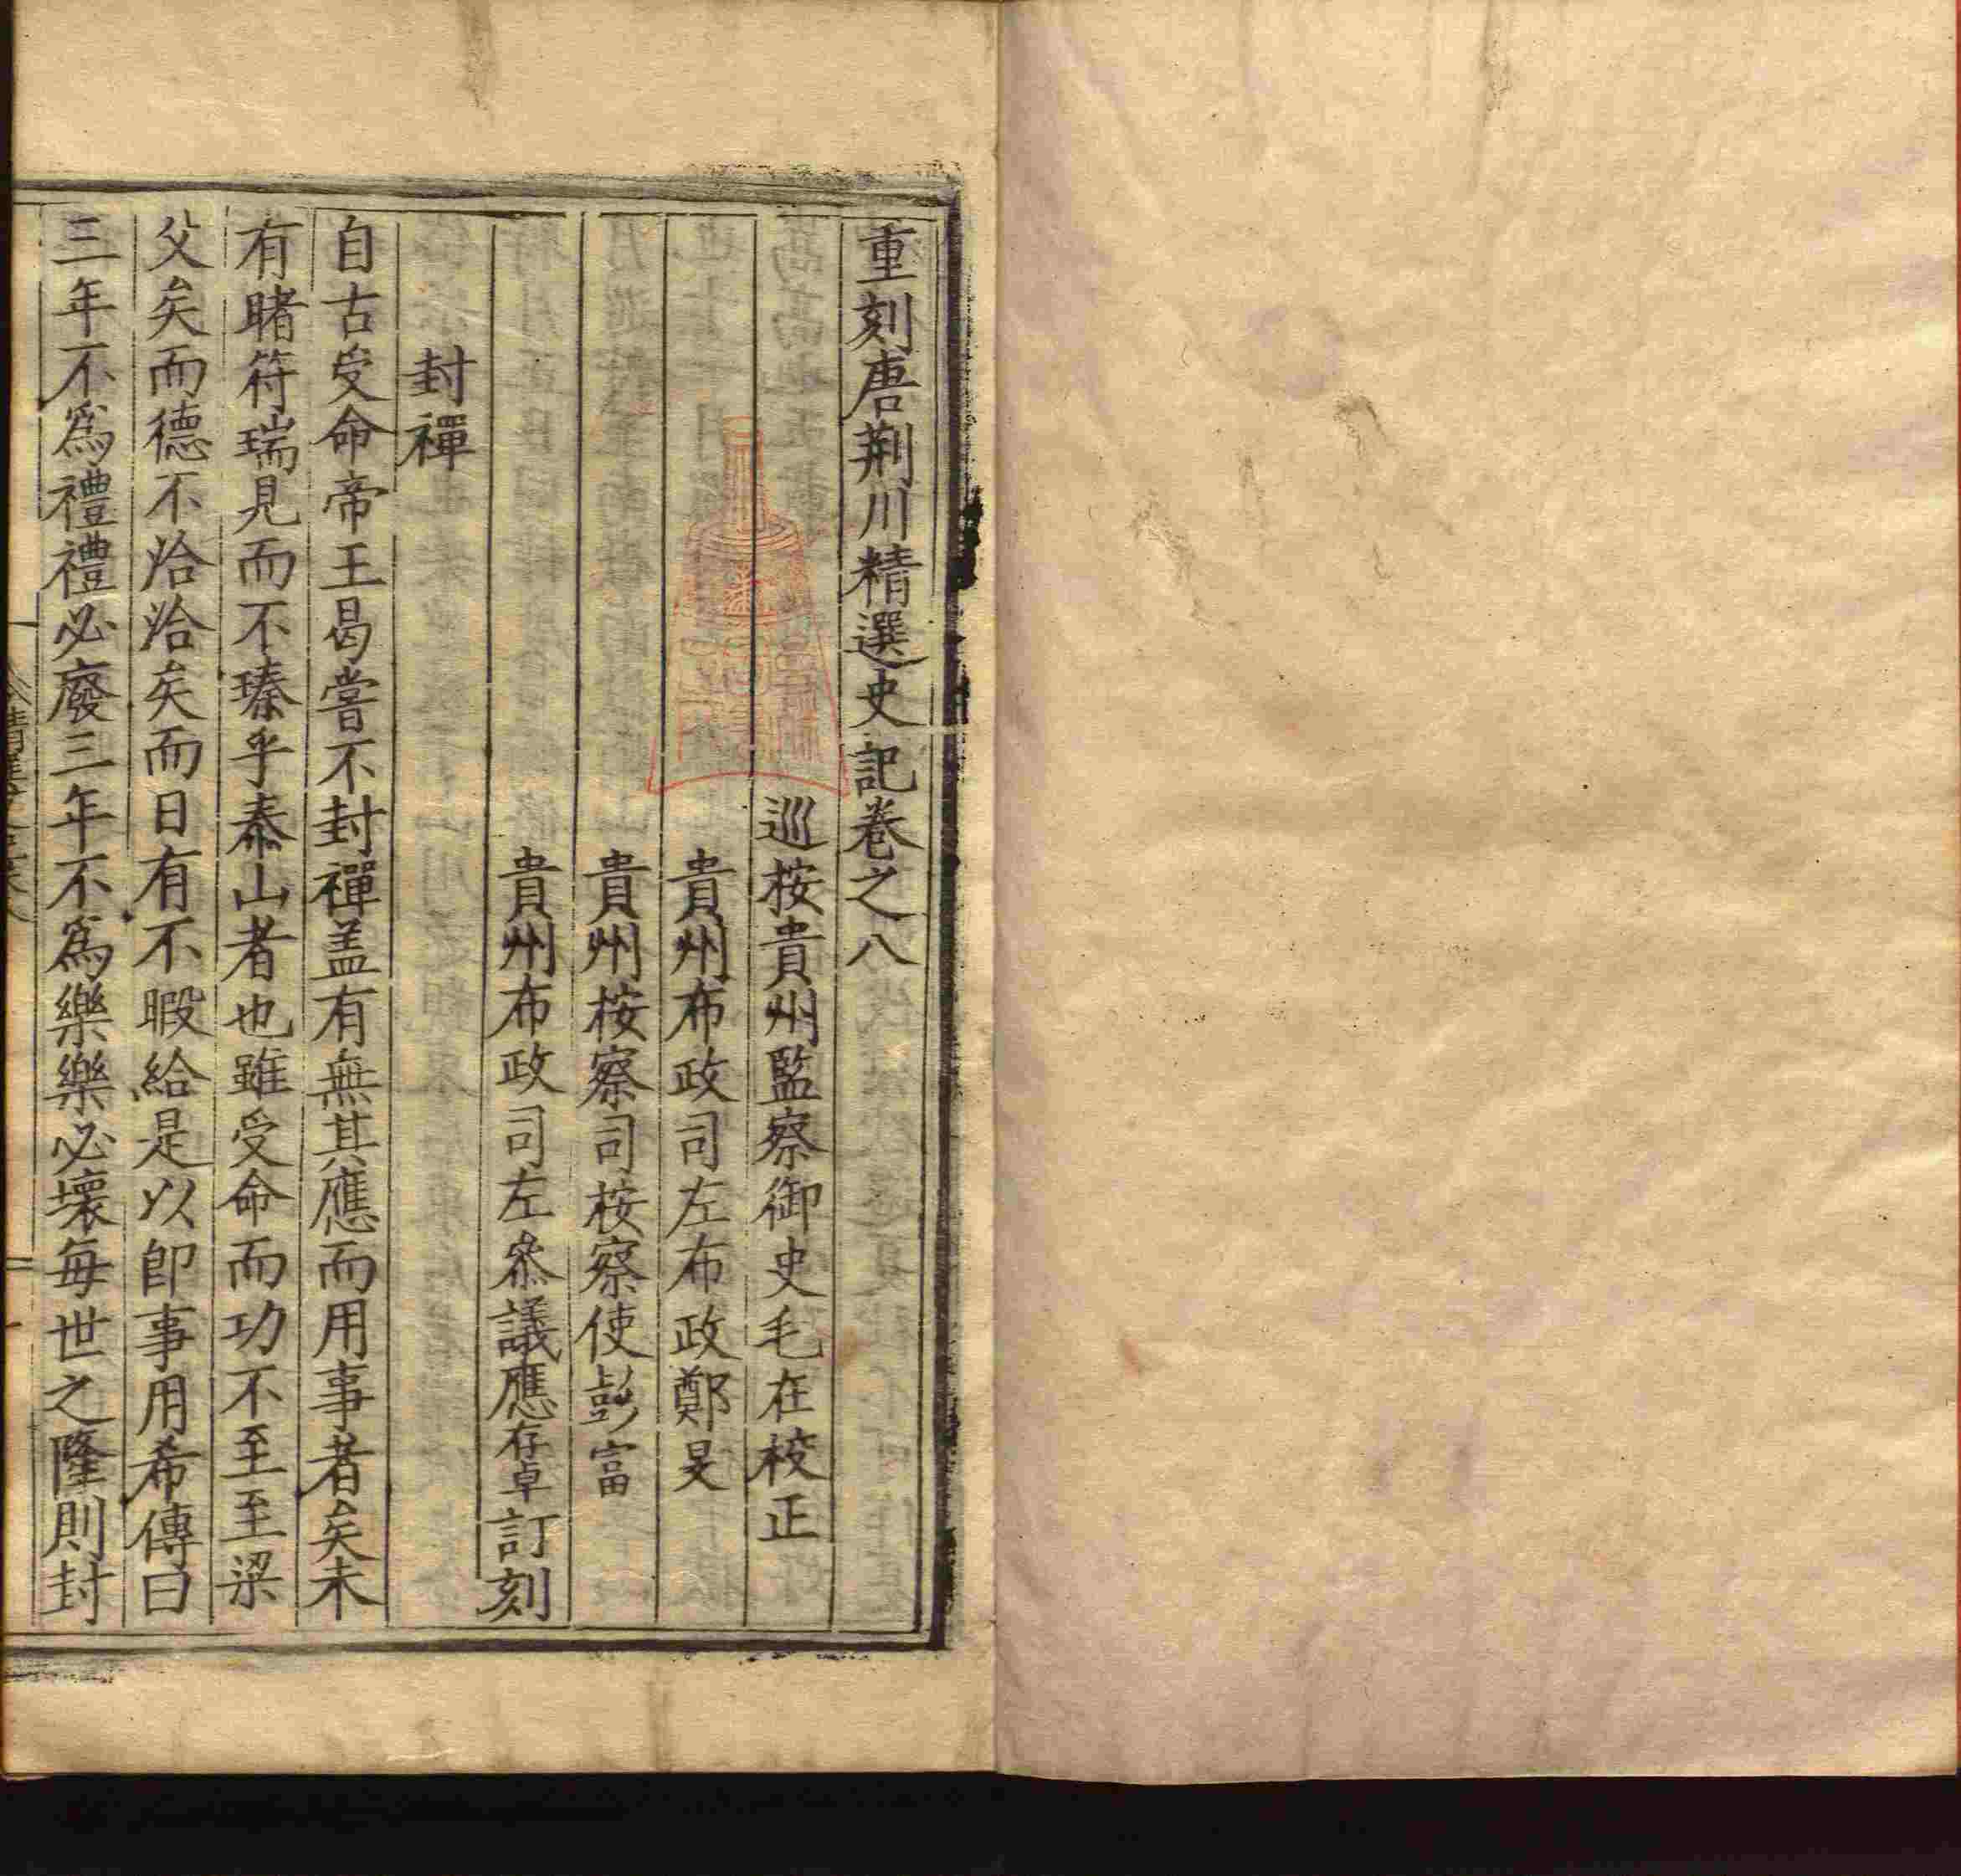 重刻唐荆川精選史記卷之八
巡按貴州監察御史毛在校正
貴州布政司左布政鄭旻
貴州按察司按察使彭富
貴州布政司左叅議應存卓訂刻
封禪
自古受命帝王曷嘗不封禪盖有無其應而用事者矣未
有睹符瑞見而不臻乎泰山者也雖受命而功不至至梁
父矣而德不洽洽矣而日有不暇給是以卽事用希傳曰
三年不爲禮禮必廢三年不爲樂樂必壞每世之隆則封